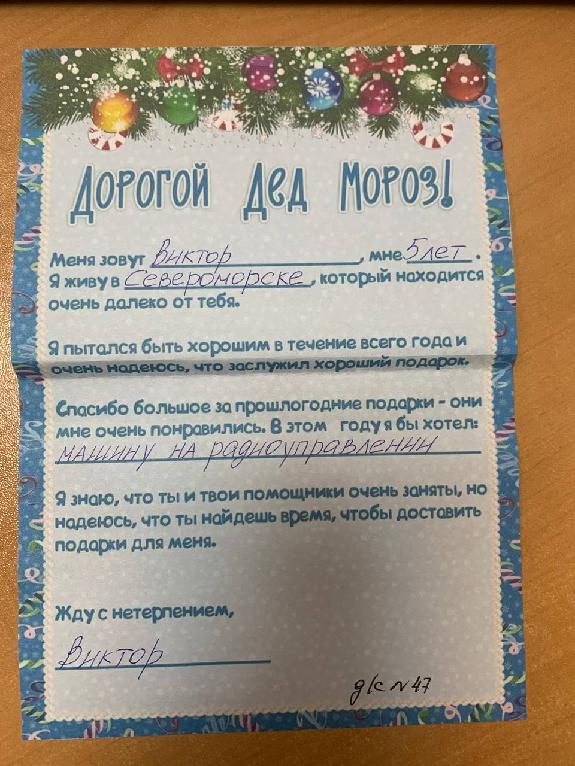 ДОРОГОЙ ДЕД МОРОЗ!
Меня зовут Виктор, мне 5 лет.
Я живу в Североморске, который находится
очень далеко от тебя.
Я пытался быть хорошим в течение всего года и
очень надеюсь, что заслужил хороший подарок.
Спасибо большое за прошлогодние подарки - они
мне очень понравились. В этом году я бы хотел:
машину на радиоуправлении
Я знаю, что ты и твои помощники очень заняты, но
надеюсь, что ты найдешь время, чтобы доставить
подарки для меня.
Жду с нетерпением,
Виктор
д/с N 47